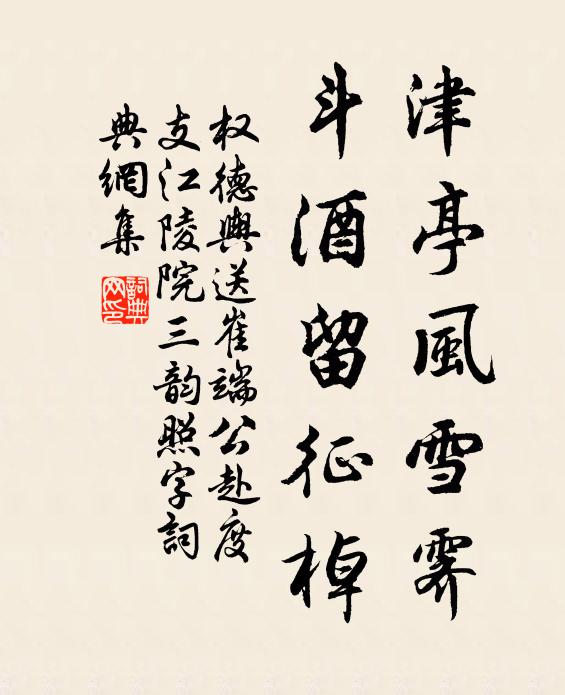 津亭風雪霽
斗酒留征棹
权德輿送崔端公赴度
支江陵院三韵照字詞
典網集
詞典网印